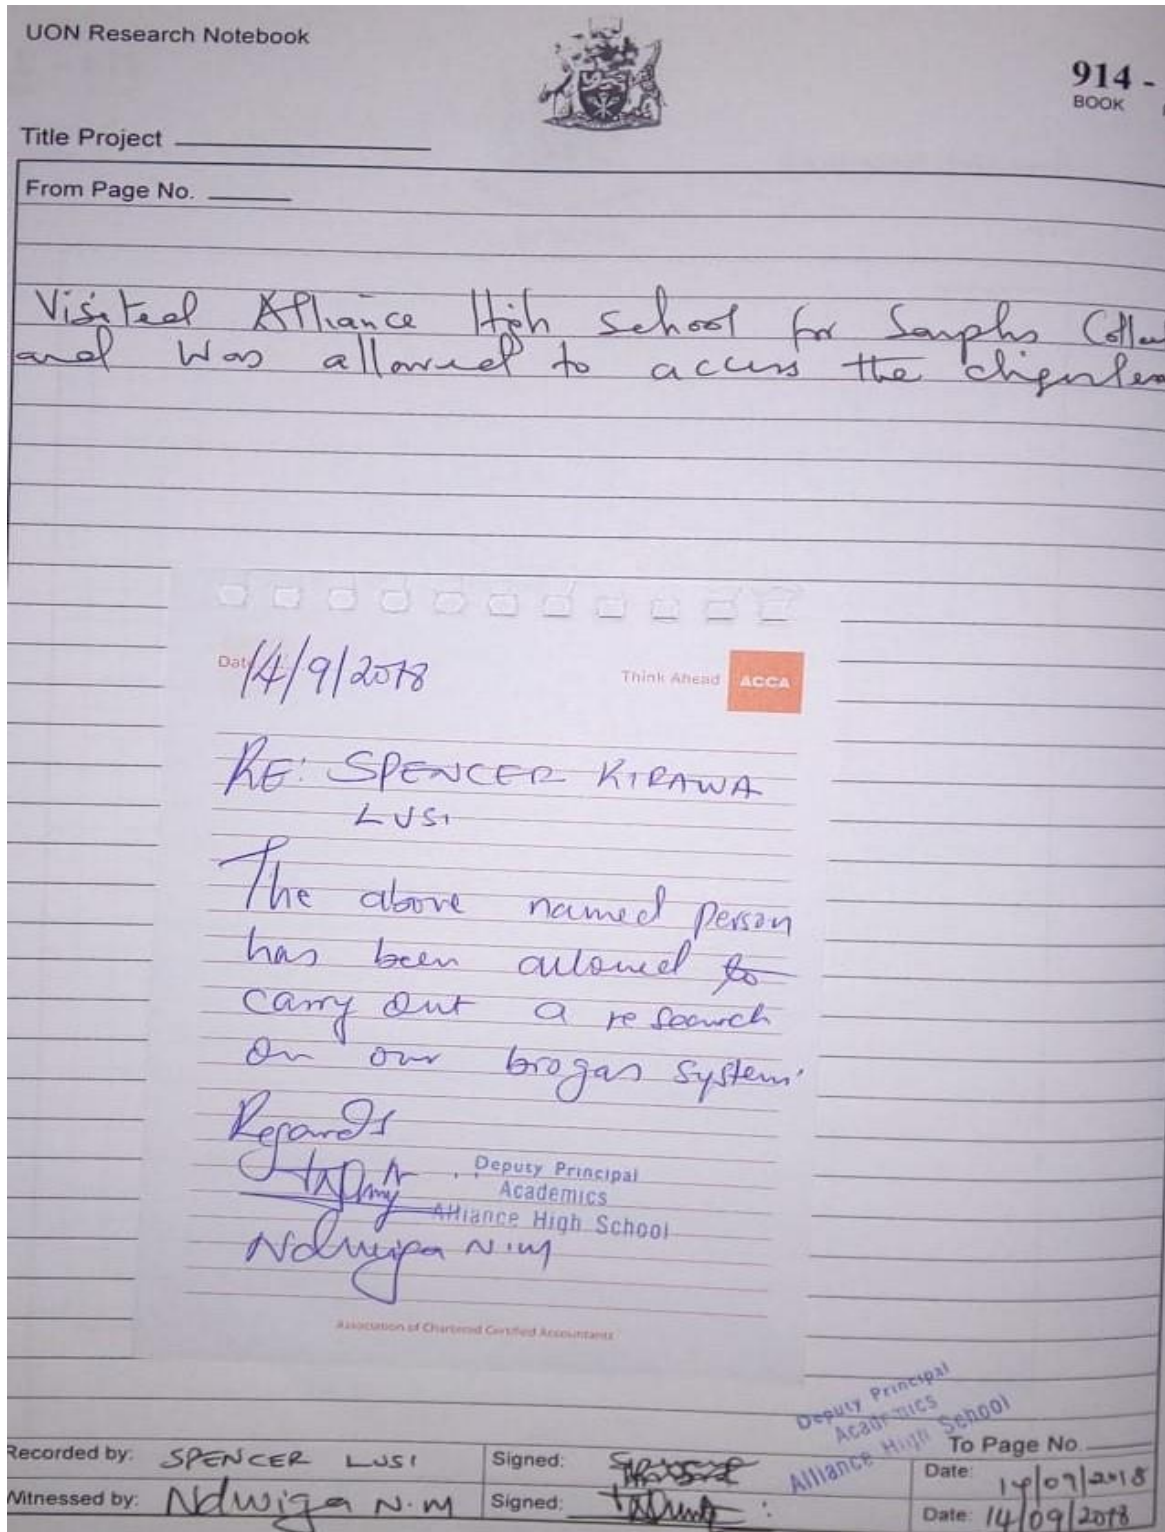 UON Research Notebook
914 -
BOOK
Title Project
From Page No.
Visited Alliance High School for Samples Collec
and was allowed to access the digester
Date 14/9/2018
Think Ahead ACCA
RE: SPENCER KIRAWA
LUSI
The above named person
has been allowed to
carry out a research
on our biogas system.
Regards
Deputy Principal
Academics
Alliance High School
Ndwiga N.M
Association of Chartered Certified Accountants
Deputy Principal
Academics
Alliance High School
To Page No.
Recorded by: SPENCER LUSI Signed: Date: 14/09/2018
Witnessed by: Ndwiga N.M Signed: Date: 14/09/2018